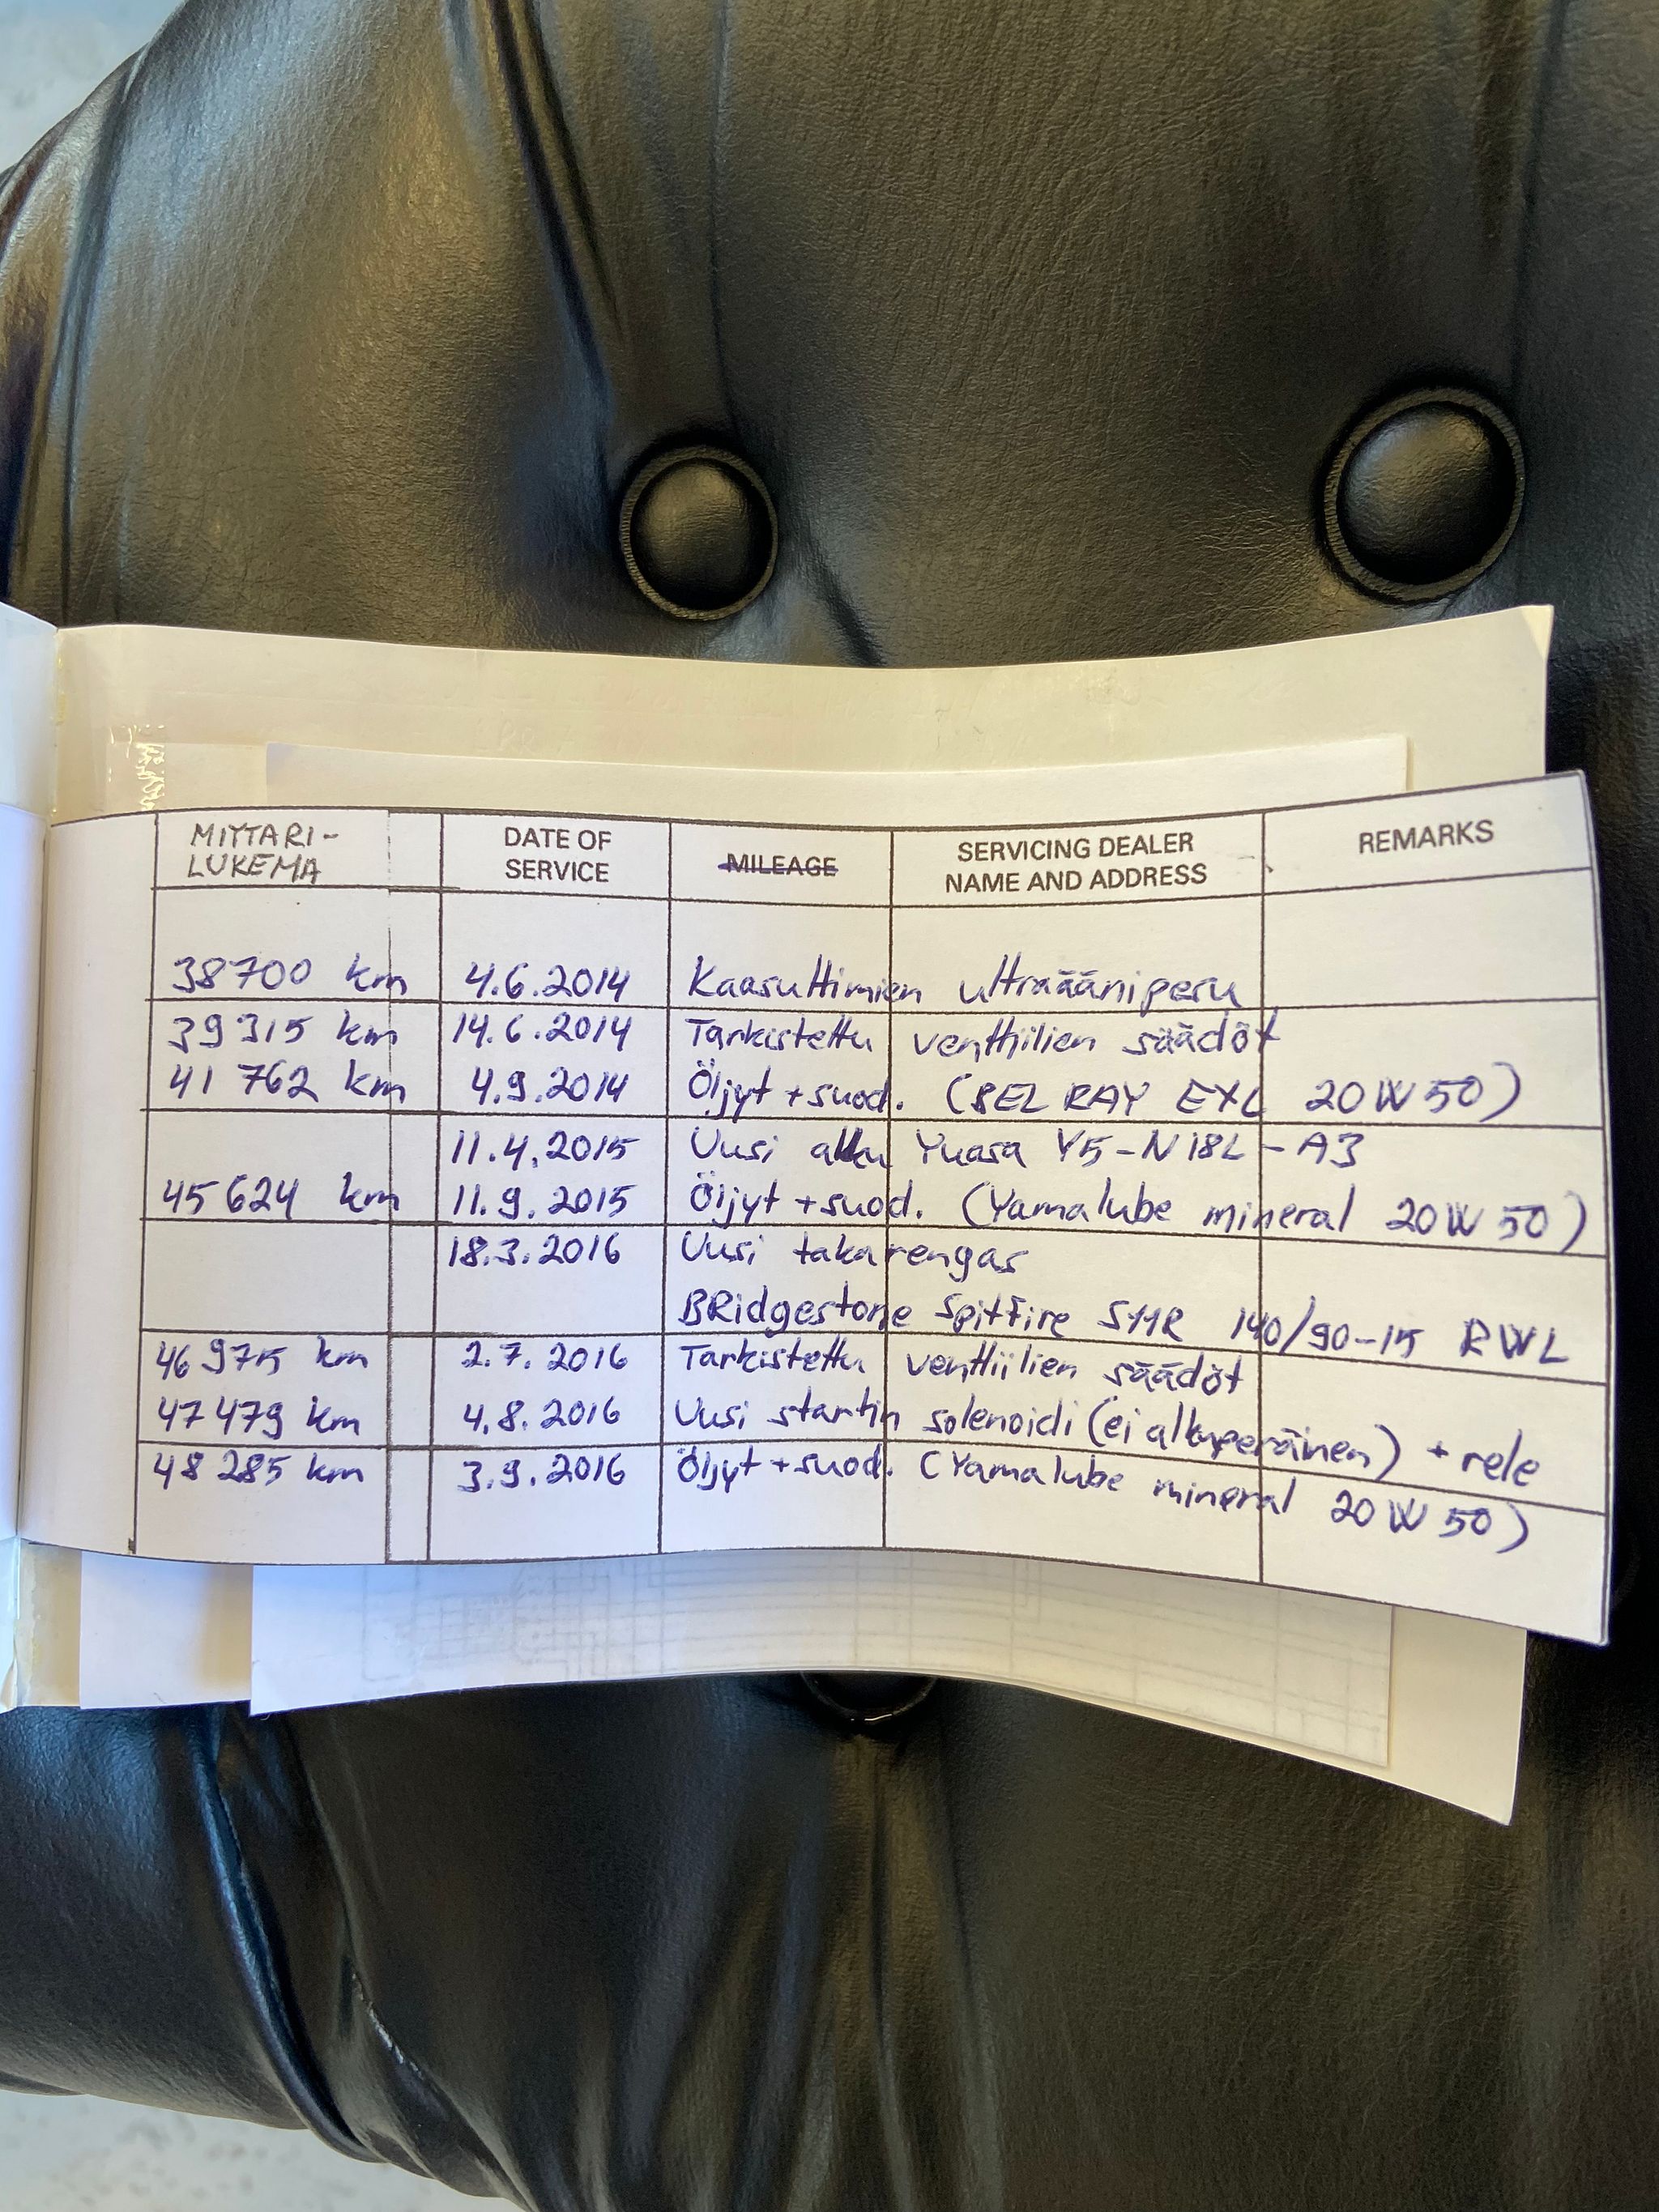 MITTARI-
LUKEMA
DATE OF
SERVICE
MILEAGE
SERVICING DEALER
NAME AND ADDRESS
REMARKS
38700 km 4.6.2014 Kaasuttimien ultraääänipesu
39315 km 14.6.2014 Tarkistettu venttiilien säädöt
41 762 km 4.9.2014 Öljyt + suod. (BEL RAY EXL 20W50)
11.4.2015 Uusi akku Yuasa Y5-N18L-A3
45624 km 11.9.2015 Öljyt + suod. (Yamalube mineral 20W50)
18.3.2016 Uusi takarengas
BRidgestone Spitfire S11R 140/90-15 RWL
46975 km 2.7.2016 Tarkistettu venttiilien säädöt
47479 km 4.8.2016 Uusi startin solenoidi (ei alkuperäinen) + rele
48285 km 3.9.2016 Öljyt + suod. (Yamalube mineral 20W50)